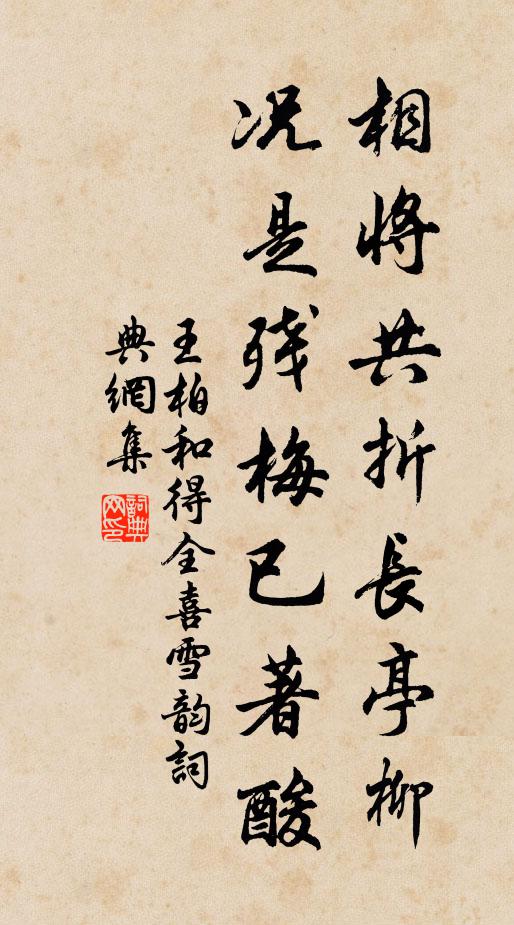 相將共折長亭柳
况是残梅已著酸
王柏和得全喜雪韵詞
典網集
詞典網印